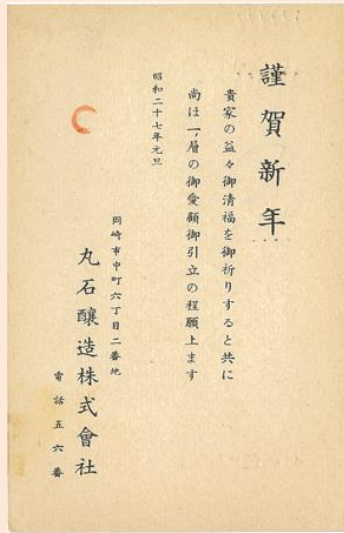 謹賀新年
貴家の益々御清福を御祈りすると共に
尚ほ一層の御愛顧御引立の程願上ます
昭和二十七年元旦
岡崎市中町六丁目二番地
丸石醸造株式會社
電話五六番